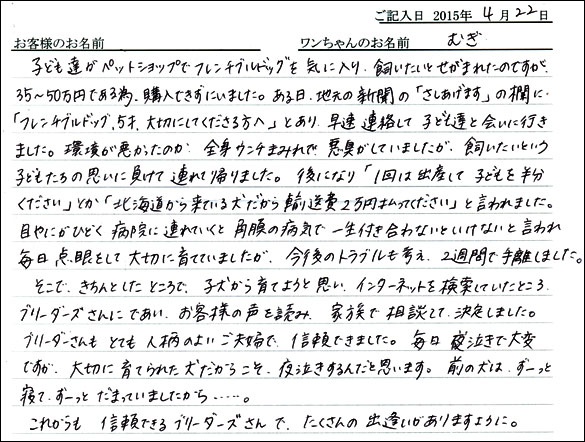 ご記入日 2015年 4月22日
お客様のお名前 ワンちゃんのお名前 むぎ
子ども達がペットショップでフレンチブルドッグを気に入り、飼いたいとせがまれたのですが、
35〜50万円である為、購入できずにいました。ある日、地元の新聞の「さしあげます」の欄に、
「フレンチブルドッグ、5才、大切にしてくださる方へ」とあり、早速連絡して子ども達と会いに行き
ました。環境が悪かったのか、全身ウンチまみれで、悪臭がしていましたが、飼いたいという
子どもたちの思いに負けて連れて帰りました。後になり「1回は出産して子どもを半分
ください」とか「北海道から来ている犬だから輸送費2万円払ってください」と言われました。
目やにがひどく病院に連れていくと角膜の病気で一生付き合わないといけないと言われ
毎日点眼をして大切に育てていましたが、今後のトラブルも考え、2週間で手離しました。
そこで、きちんとしたところで、子犬から育てようと思い、インターネットを検索していたところ、
ブリーダーズさんにであい、お客様の声を読み、家族で相談して、決定しました。
ブリーダーさんも とても人柄のよいご夫婦で、信頼できました。毎日夜泣きで大変
ですが、大切に育てられた犬だからこそ、夜泣きするんだと思います。前の犬は、ずーっと
寝て、ずーっとだまっていましたから……。
これからも 信頼できるブリーダーズさんで、たくさんの出逢いがありますように。